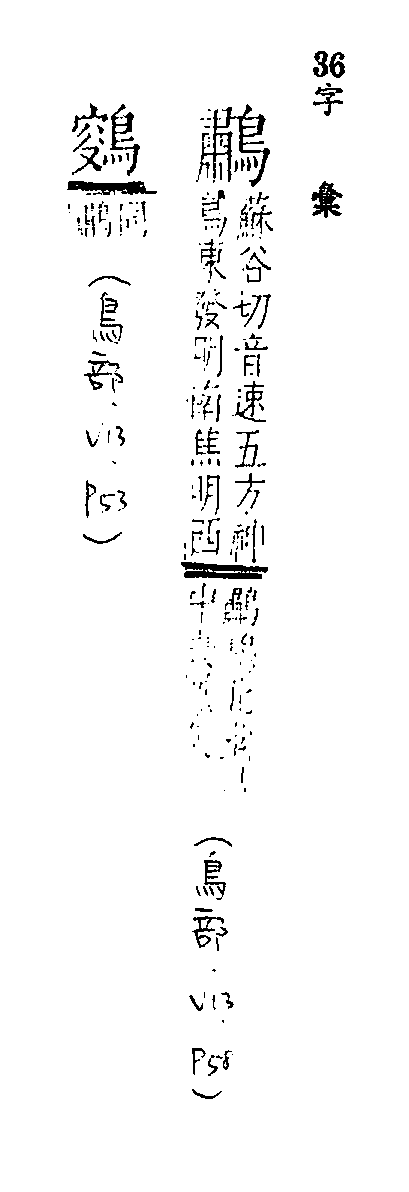 36字彙
鷫
蘇谷切音速五方神
鳥東發明南焦明西
鷫
中央
(鳥部.V13.P58)
同鷫
(鳥部.V13.P53)